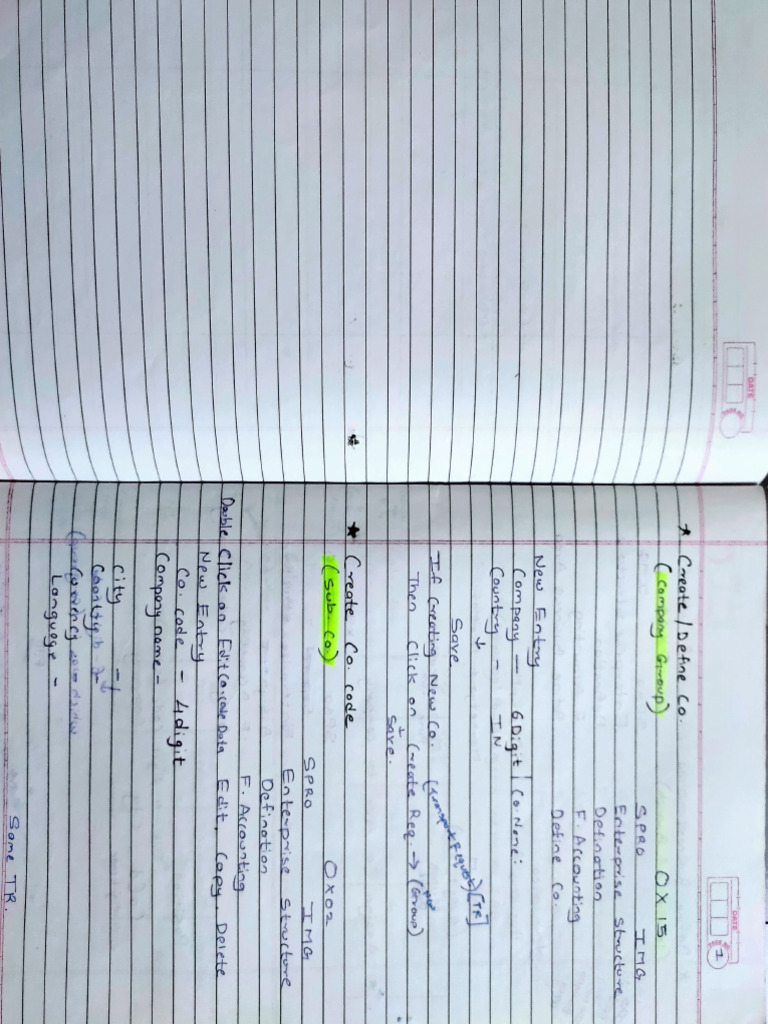 DATE
DATE
1
★ Create / Define Co. OX15
(Company Group)
SPRO IMG
Enterprise Structure
Defination
F. Accounting
Define Co.
New Entry
Company — 6 Digit | Co Name:
Country - IN
↓
Save
If Creating New Co. [TR]
Then Click on Create Req. → (Group)
↓
Save.
★ Create Co. code OX02
(Sub-Co)
SPRO IMG
Enterprise Structure
Defination
F. Accounting
Double Click on Edit Co. code Data Edit, Copy, Delete
New Entry
Co. code - 4 digit
Company name -
City -
Currency
Language -
Same TR.